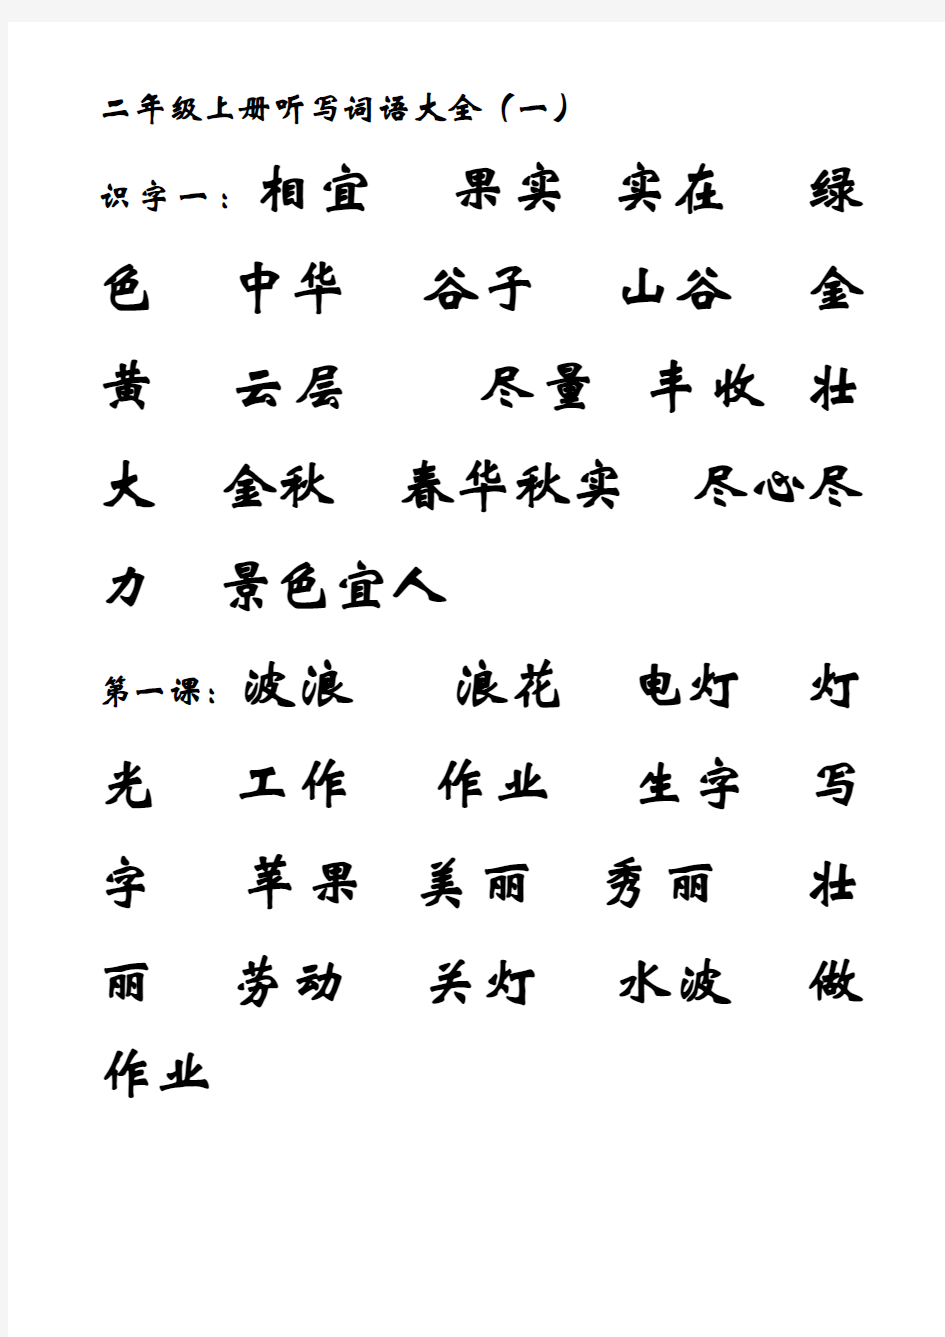 二年级上册听写词语大全（一）
识字一：相宜 果实 实在 绿
色 中华 谷子 山谷 金
黄 云层 尽量 丰收 壮
大 金秋 春华秋实 尽心尽
力 景色宜人
第一课：波浪 浪花 电灯 灯
光 工作 作业 生字 写
字 苹果 美丽 秀丽 壮
丽 劳动 关灯 水波 做
作业